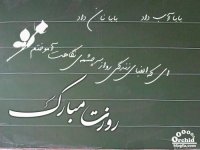 بابا آب داد   بابا نان داد
ای که الفبای زندگی را از سرچشمه‌ی نگاهت آموختم
روزت مبارک
Orchid